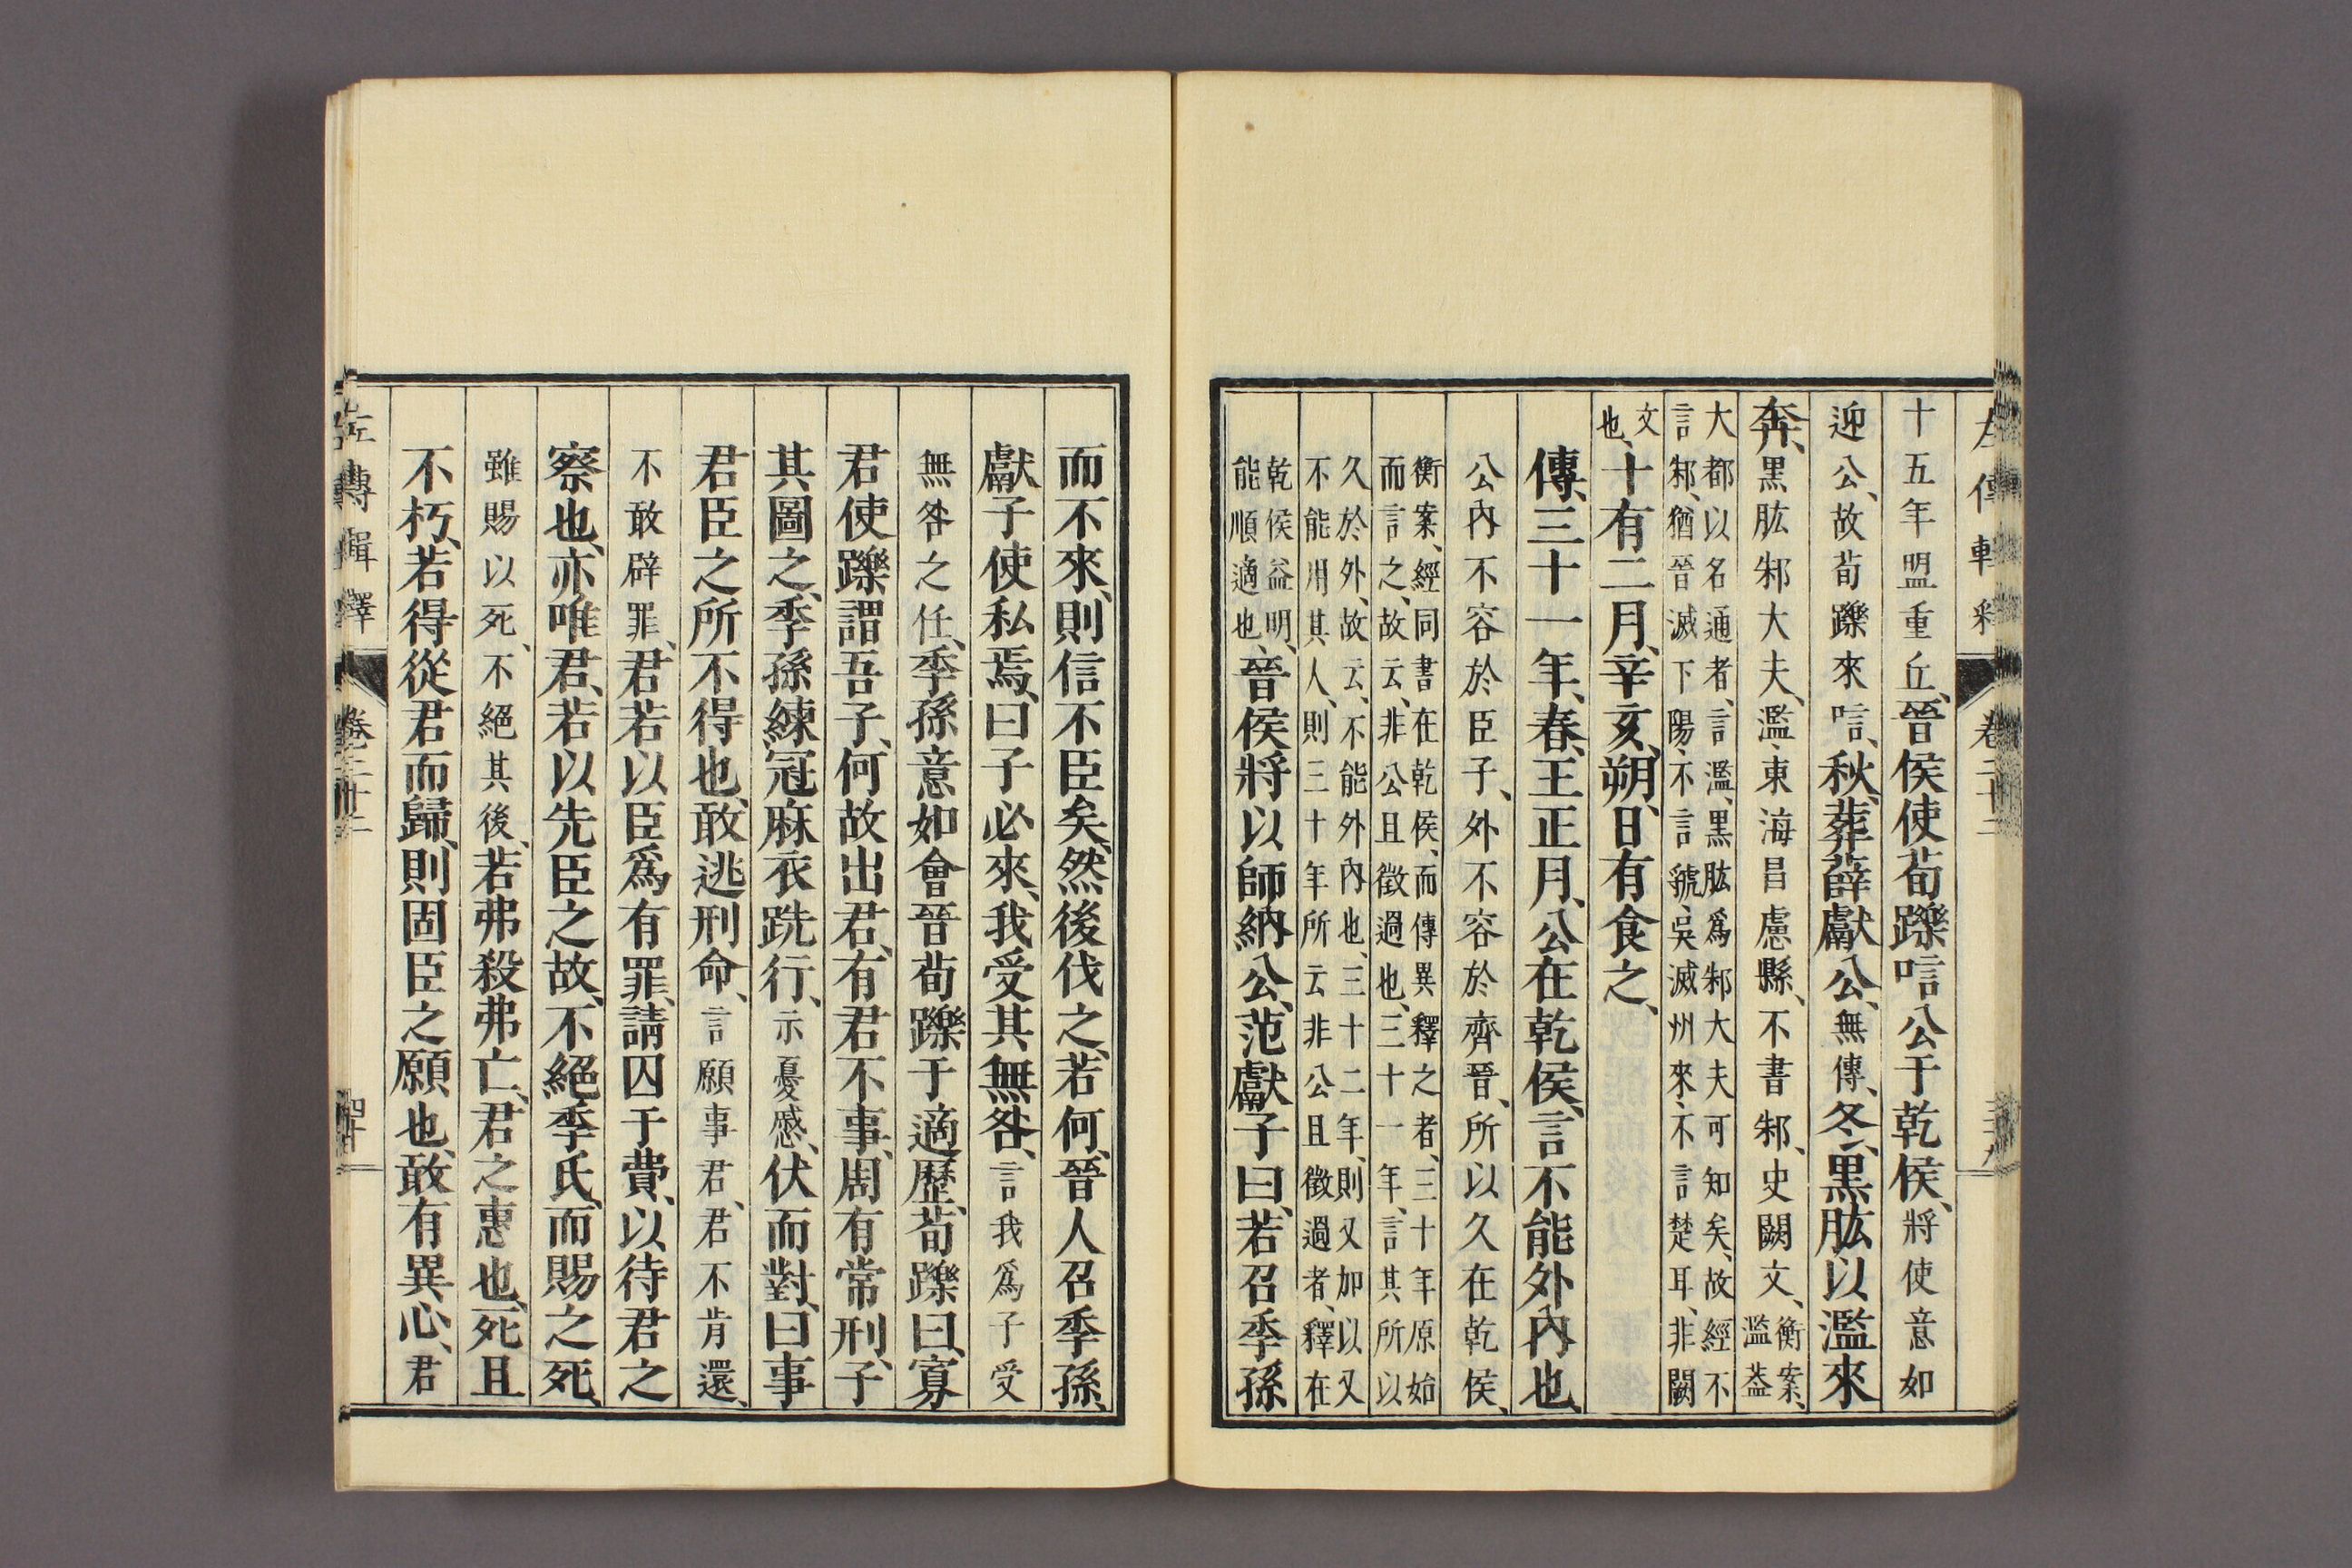 左傳輯釋 卷二十二
十五年盟重丘、晉侯使荀躒唁公于乾侯、將使意如
迎公、故荀躒來唁、秋、葬薛獻公、無傳、冬、黑肱以濫來
奔、黑肱邾大夫、濫、東海昌慮縣、不書邾、史闕文、衡案、濫葢
大都以名通者、言濫、黑肱爲邾大夫可知矣、故經不
言邾、猶晉滅下陽、不言虢、吳滅州來、不言楚耳、非闕
文也、十有二月、辛亥、朔、日有食之、
傳、三十一年、春、王正月、公在乾侯、言不能外內也、
公內不容於臣子、外不容於齊晉、所以久在乾侯、
衡案、經同書在乾侯、而傳異釋之者、三十年原始
而言之、故云、非公且徵過也、三十一年、言其所以
久於外、故云、不能外內也、三十二年、則又加以又
不能用其人、則三十年所云非公且徵過者、釋在
乾侯益明、能順適也、晉侯將以師納公、范獻子曰、若召季孫
而不來、則信不臣矣、然後伐之、若何、晉人召季孫、
獻子使私焉、曰子必來、我受其無咎、言我爲子受
無咎之任、季孫意如會晉荀躒于適歷、荀躒曰、寡
君使躒謂吾子、何故出君、有君不事、周有常刑、子
其圖之、季孫練冠麻衣跣行、示憂慼、伏而對、曰事
君臣之所不得也、敢逃刑命、言願事君、君不肯還、
不敢辟罪、君若以臣爲有罪、請囚于費、以待君之
察也、亦唯君、若以先臣之故、不絕季氏、而賜之死、
雖賜以死、不絕其後、若弗殺弗亡、君之惠也、死且
不朽、若得從君而歸、則固臣之願也、敢有異心、君
左傳輯釋 卷二十二 四十